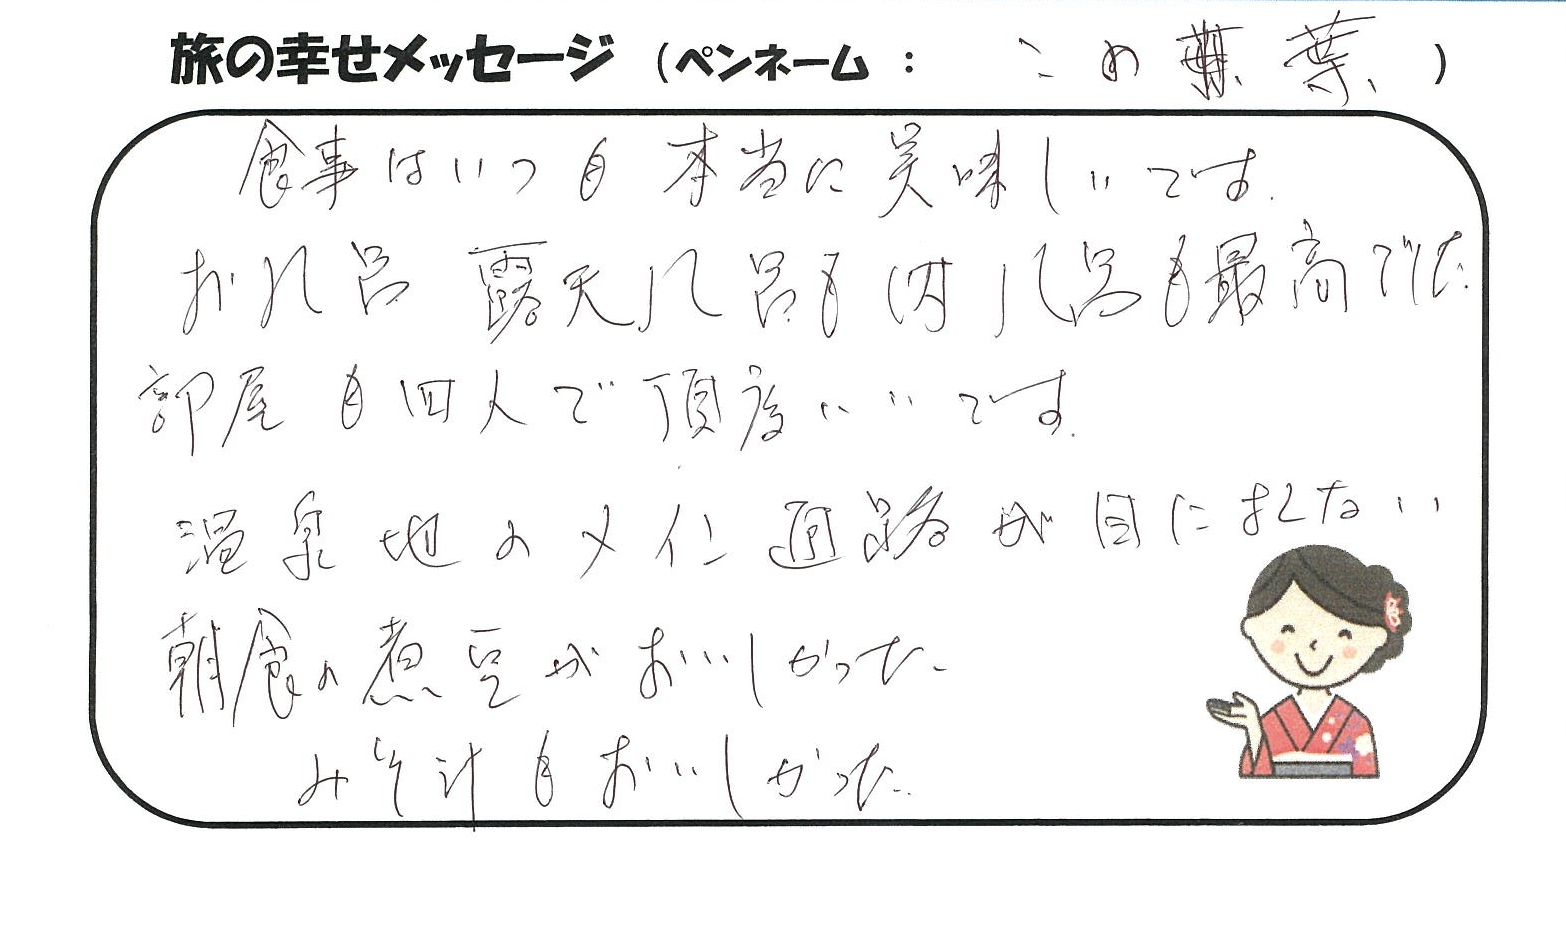 旅の幸せメッセージ (ペンネーム : この葉 )
食事はいつも本当に美味しいです.
お風呂 露天風呂も内風呂も最高でした.
部屋も四人で頂度いいです.
温泉地のメイン通路が目にまれない
朝食の煮豆がおいしかった.
みそ汁もおいしかった.